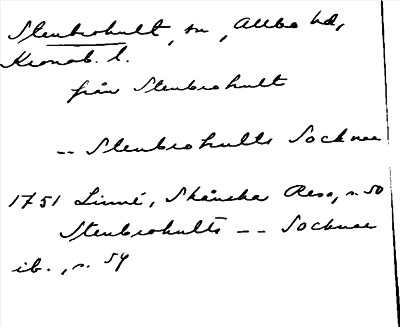 Stenbrohult, sn, Allbo hd,
Kronob. l.
från Stenbrohult
-- Stenbrohults Socknee
1751 Linné, Skånska Resa, s. 50
Stenbrohults -- Socknee
ib., s. 54